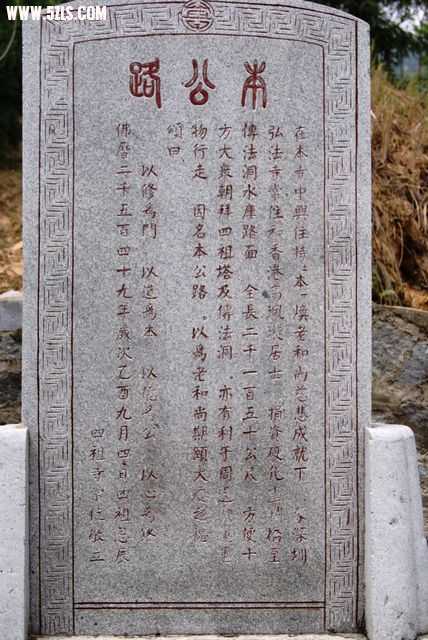 www.5ZLS.COM
本公路
在本寺中興住持上本下煥老和尚慈悲成就下 深圳
弘法寺常住 香港高佩 居士 捐資硬化 塔至
傳法洞水庫路面 全長二千一百五十公尺 方便十
方大眾朝拜四祖塔及傳法洞 亦有利于周
物行走 因名本公路 以為老和尚期頤大
頌曰
以修為門 以道為本 以 公 以
佛曆二千五百四十九年歲次乙酉九月四日四祖忌辰
四祖寺常住敬立